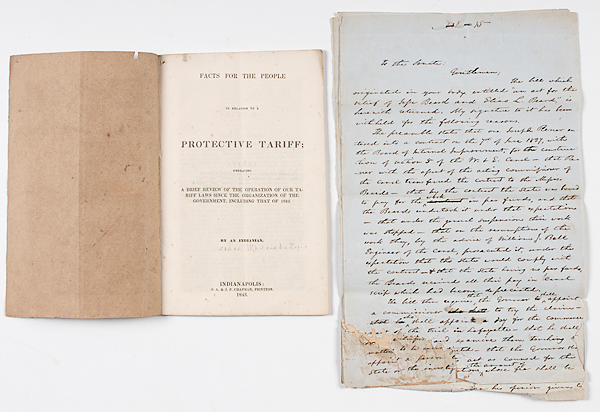 FACTS FOR THE PEOPLE
IN RELATION TO A
PROTECTIVE TARIFF;
EMBRACING
A BRIEF REVIEW OF THE OPERATION OF OUR TA-
RIFF LAWS SINCE THE ORGANIZATION OF THE
GOVERNMENT, INCLUDING THAT OF 1842
BY AN INDIANIAN.
INDIANAPOLIS:
PRINTED BY
1843.
To the Senate.
Gentlemen,
The bill which
originated in your body entitled "an act for the
relief of Jefse Beard and Elias L. Beard," is
herewith returned. My signature to it has been
withheld for the following reasons.
The preamble states that one Joseph en-
tered into a contract on the 7th of June 1837, with
the Board of Internal Improvement, for the construc-
tion of section 8 of the W. & E. Canal – that
ver with the assent of the acting commissioner of
the Canal transferred the contract to the Mefsrs.
Beards – that by the contract the State was bound
to pay for the work in par funds, and that
the Beards undertook it under that expectation
– that under the general suspension their work
was stopped – that on the resumption of the
work they, by the advice of William J. Ball
Engineer of the Canal, prosecuted it, under the
expectation that the State would comply with
the contract – & that the State having no par funds,
the Beards received all their pay in Canal
scrip which has been depreciated.
The bill then requires the Governor to appoint
a commissioner to try the claim –
shall appoint a day for the commence
ment of the trial in Lafayette – that he shall
and examine them touching
matters to be – that the Governor shall
appoint a person to act as counsel for the
State on the investigation, whose fee shall be
his opinion given to